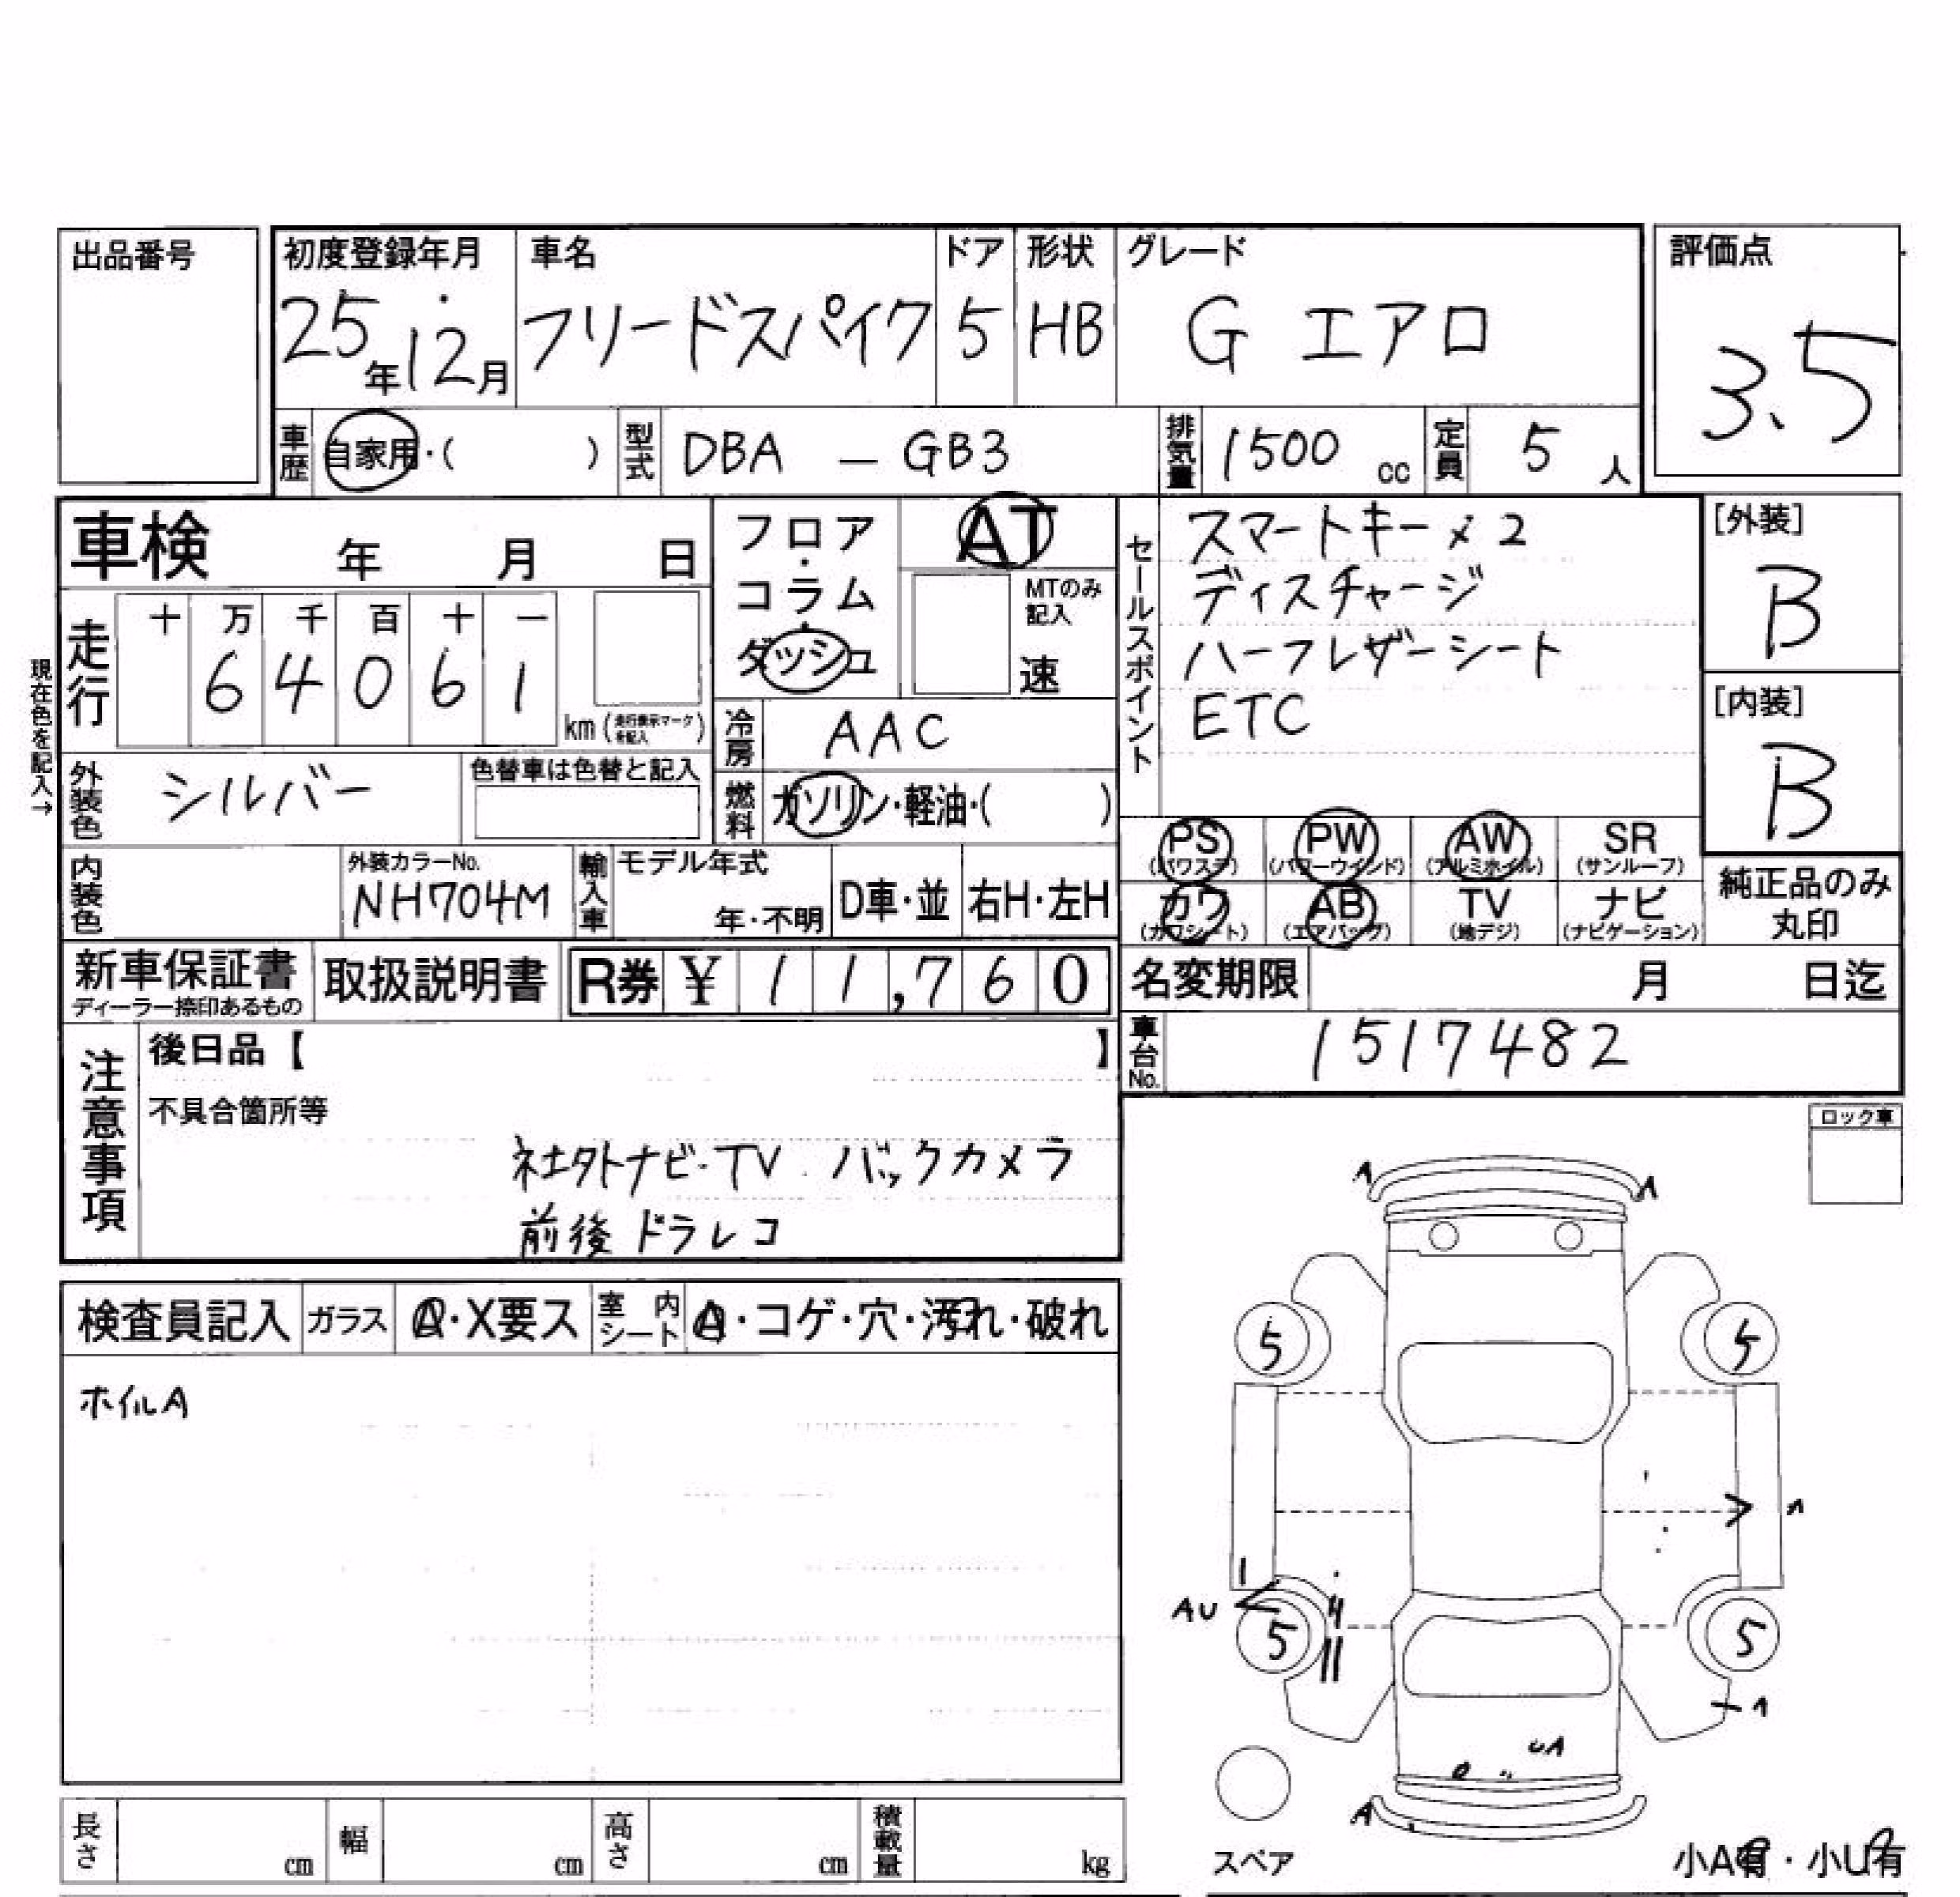 出品番号
初度登録年月 車名 ドア 形状 グレード 評価点
25年12月 フリードスパイク 5 HB G エアロ 3.5
車歴 自家用・( ) 型式 DBA - GB3 排気量 1500 cc 定員 5 人
車検 年 月 日
フロア・コラム・ダッシュ
AT
MTのみ記入
速
現在色を記入→
走行 十 万 千 百 十 一
6 4 0 6 1
km (走行表示マークを記入)
冷房 AAC
外装色 シルバー 色替車は色替と記入
燃料 ガソリン・軽油・( )
セールスポイント
スマートキー×2
ディスチャージ
ハーフレザーシート
ETC
[外装]
B
[内装]
B
PS (パワステ) PW (パワーウインド) AW (アルミホイル) SR (サンルーフ)
カワ (カワシート) AB (エアバッグ) TV (地デジ) ナビ (ナビゲーション)
純正品のみ
丸印
内装色 外装カラーNo. NH704M 輸入車 モデル年式 年・不明 D車・並 右H・左H
新車保証書 ディーラー捺印あるもの 取扱説明書 R券 ¥ 11,760
名変期限 月 日迄
車台No. 1517482
注意事項
後日品【 】
不具合箇所等
社外ナビ・TV バックカメラ
前後ドラレコ
ロック車
検査員記入 ガラス A・X要ス 室内シート A・コゲ・穴・汚れ・破れ
ホイルA
A A
5 5
AU
5 5
UA
A
スペア
小A有・小U有
長さ cm 幅 cm 高さ cm 積載量 kg